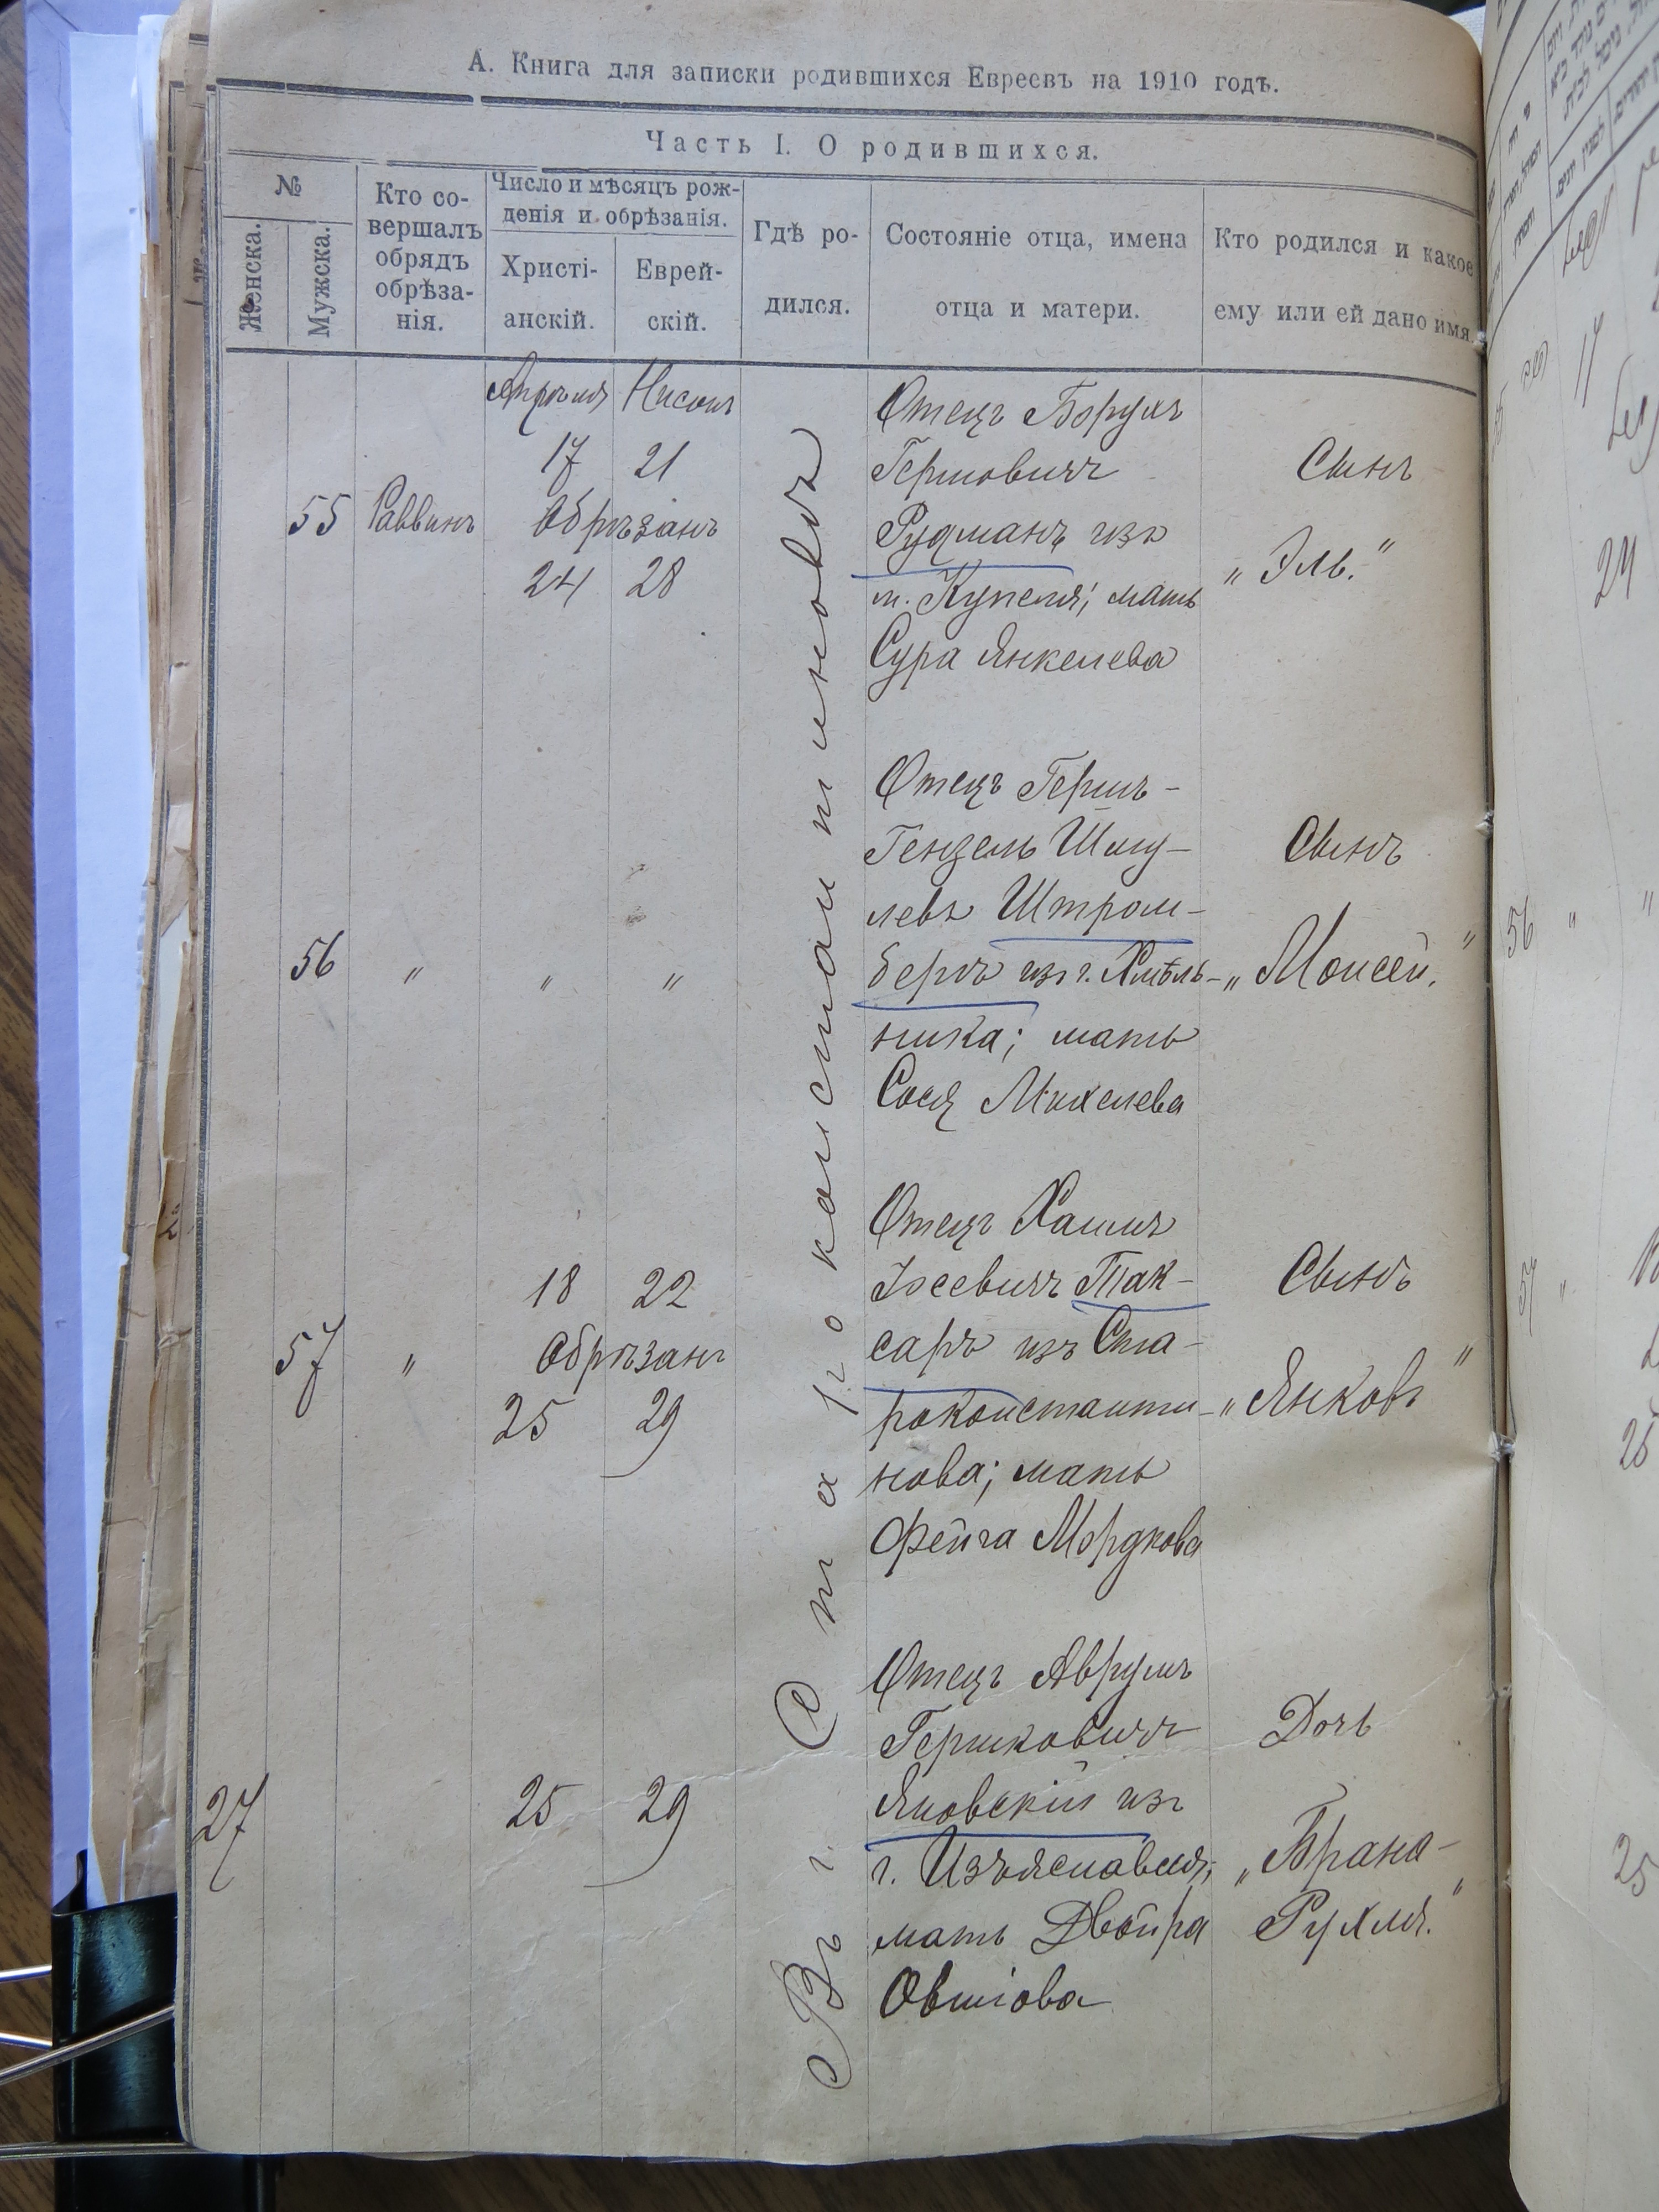 А. Книга для записки родившихся Евреевъ на 1910 годъ.
Часть I. О родившихся.
№
Женска.
Мужска.
Кто со-
вершалъ
обрядъ
обрѣза-
нія.
Число и мѣсяцъ рож-
денія и обрѣзанія.
Христі-
анскій.
Еврей-
скій.
Гдѣ ро-
дился.
Состояніе отца, имена
отца и матери.
Кто родился и какое
ему или ей дано имя.
Апрѣля Нисонъ
17 21
55 Раввинъ Обрѣзанъ
24 28
Отецъ Борухъ
Гершовичъ
Рудманъ изъ
м. Купеля; мать
Сура Янкелева
Сынъ
„Эль."
Въ г. Староконстантиновѣ
56 " " "
Отецъ Гершъ-
Гензель Шму-
левъ Штром-
бергъ изъ г. Хмѣль-
ника; мать
Сося Михелева
Сынъ
„Моисей."
18 22
57 " Обрѣзанъ
25 29
Отецъ Хаимъ
Іосевичъ Так-
саръ изъ Ста-
роконстанти-
нова; мать
Фейга Мордкова
Сынъ
„Янковъ"
27 25 29
Отецъ Аврумъ
Гершковичъ
Яновскій изъ
г. Изъяславля;
мать Двойра
Овшіова
Дочь
„Брана-
Рухля."
56 " "
57 "
24
25